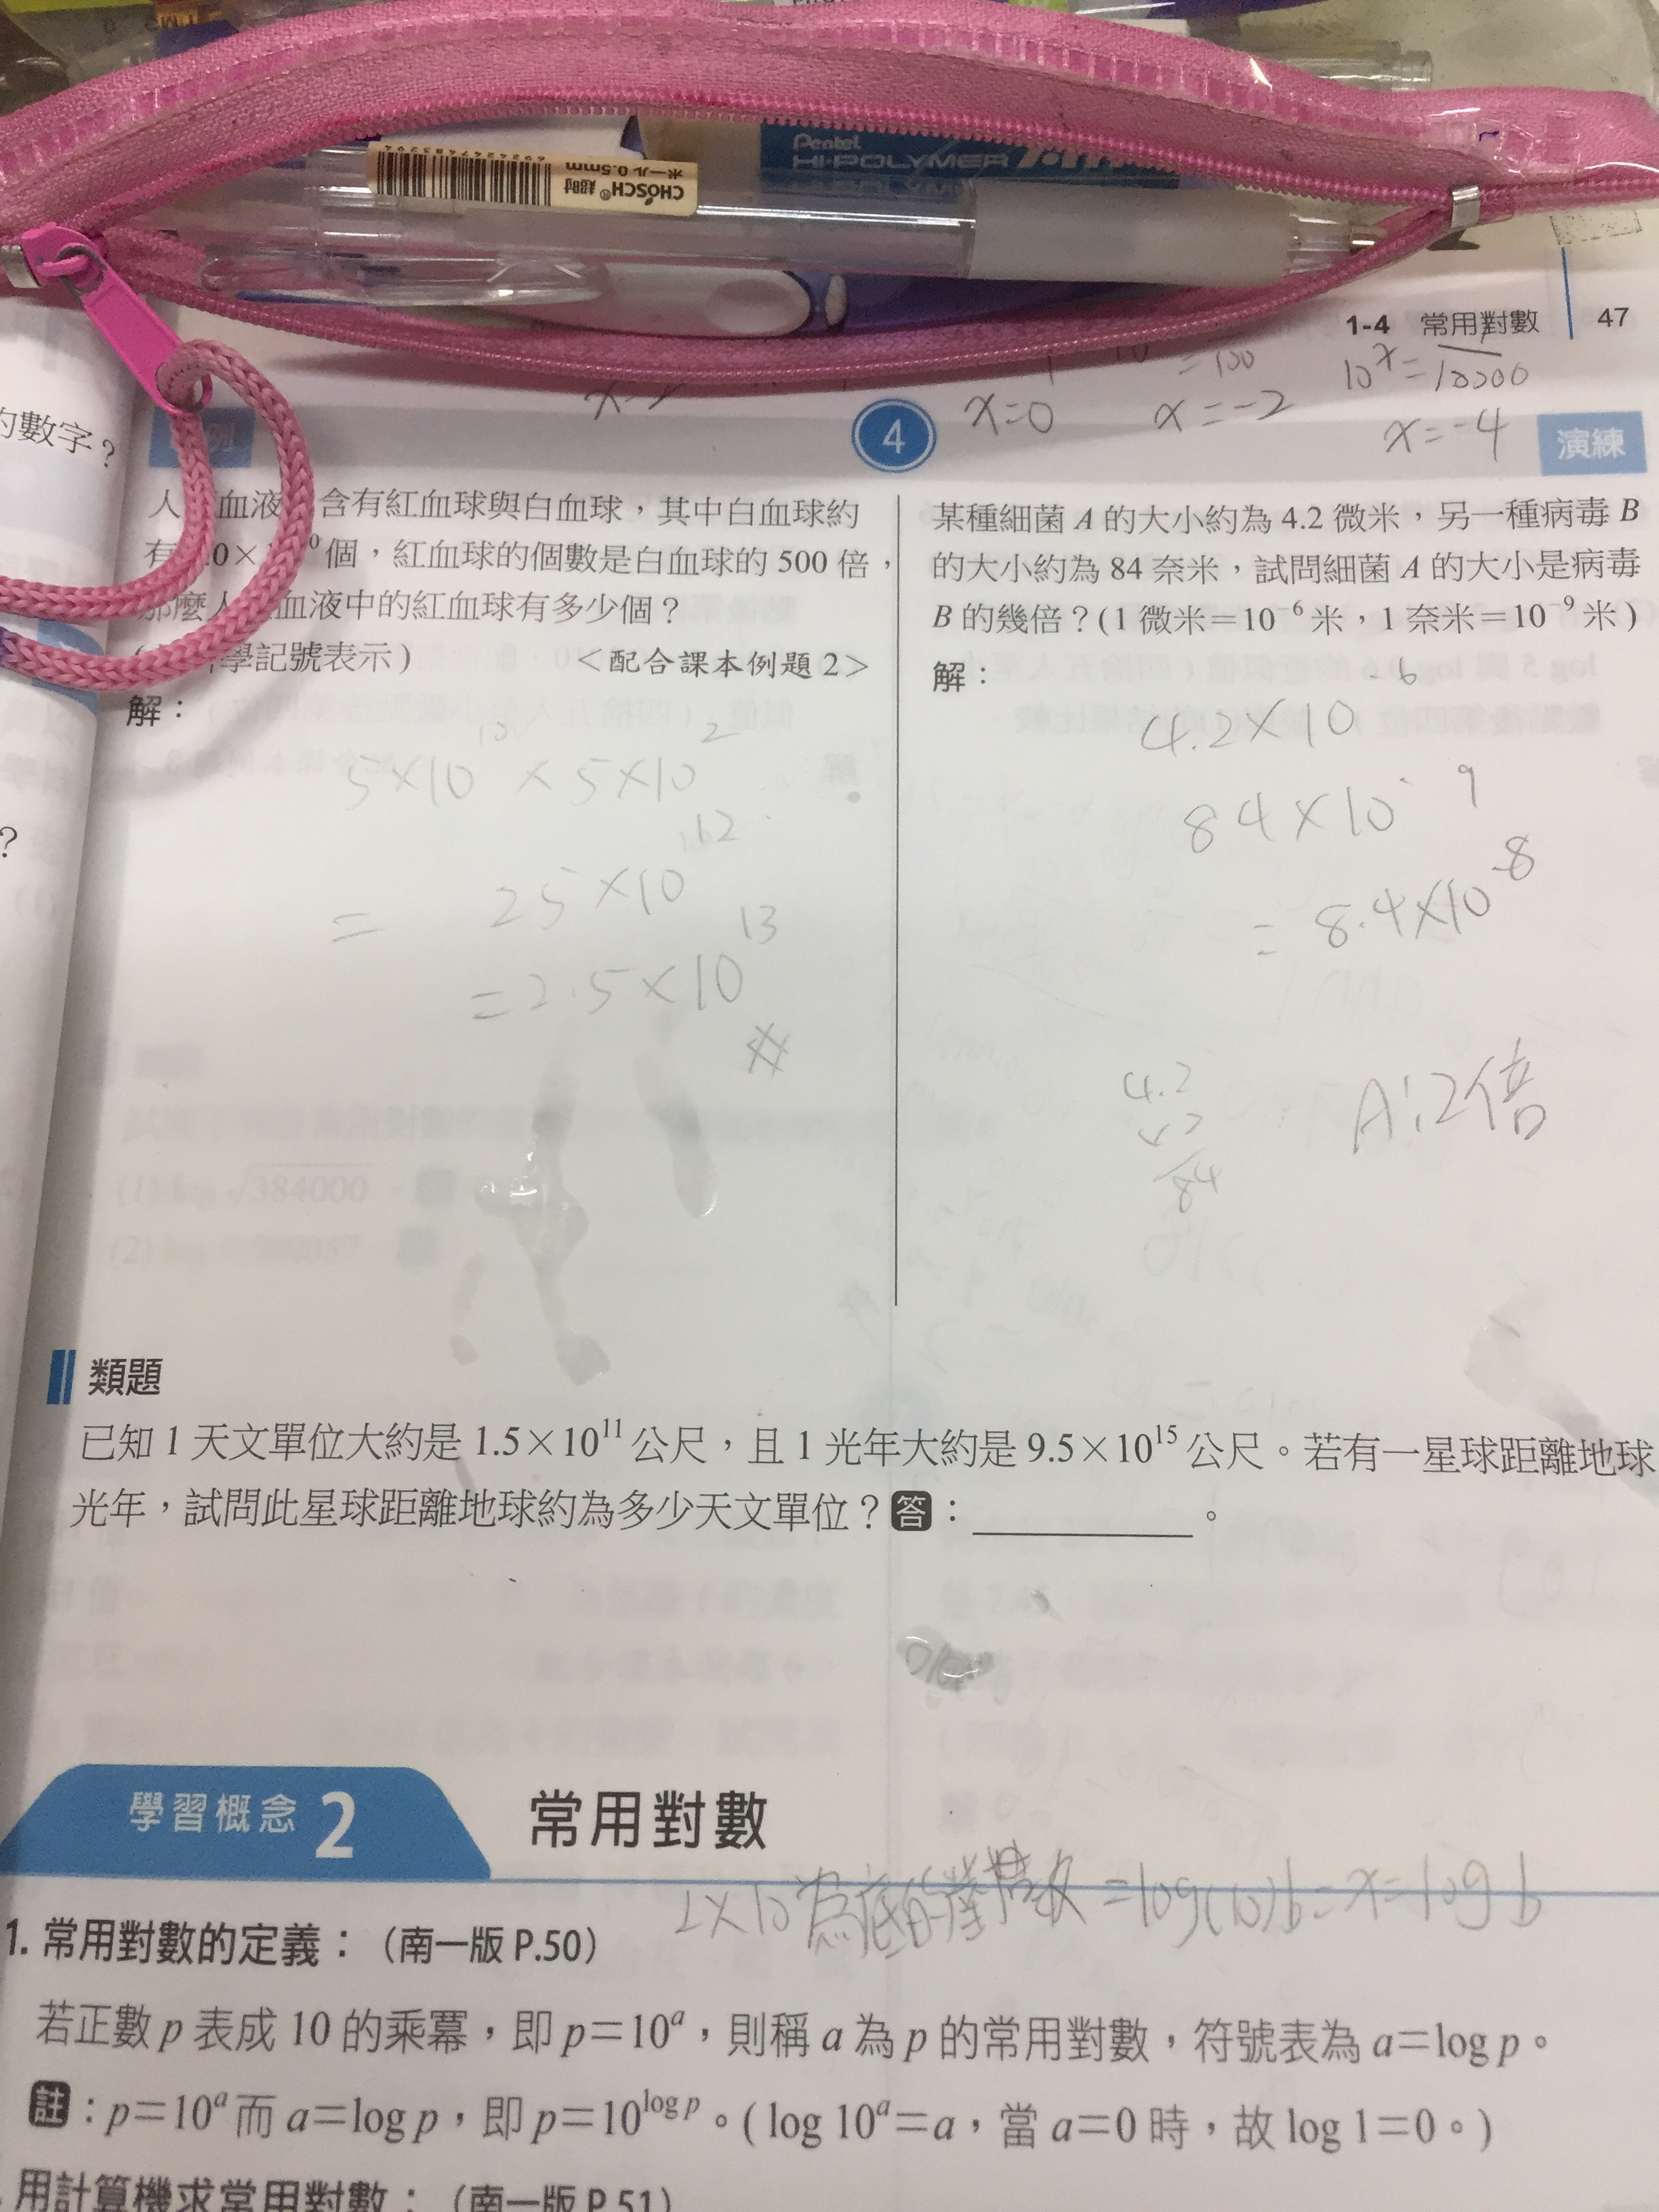 Pentel
HI-POLYMER
CHOSCH® 超时
ボール 0.5mm
6924247483294
1-4 常用對數 47
=100
10^x=1/10000
x=0
x=-2
x=-4
的數字?
例
4
演練
人 血液 含有紅血球與白血球,其中白血球約
有 0× 0 個,紅血球的個數是白血球的 500 倍,
那麼人 血液中的紅血球有多少個?
學記號表示) <配合課本例題 2>
解:
5×10^10 × 5×10^2
= 25×10^12
=2.5×10^13
#
某種細菌 A 的大小約為 4.2 微米,另一種病毒 B
的大小約為 84 奈米,試問細菌 A 的大小是病毒
B 的幾倍?(1 微米=10^-6 米,1 奈米=10^-9 米)
解:
4.2×10^-6
84×10^-9
= 8.4×10^-8
4.2
84
A:2倍
?
類題
已知 1 天文單位大約是 1.5×10^11 公尺,且 1 光年大約是 9.5×10^15 公尺。若有一星球距離地球
光年,試問此星球距離地球約為多少天文單位?答:________。
學習概念 2 常用對數
為底的對數 =log(10)b=x=log b
1. 常用對數的定義:(南一版 P.50)
若正數 p 表成 10 的乘冪,即 p=10^a,則稱 a 為 p 的常用對數,符號表為 a=log p。
註:p=10^a 而 a=log p,即 p=10^log p。(log 10^a=a,當 a=0 時,故 log 1=0。)
用計算機求常用對數:(南一版 P.51)